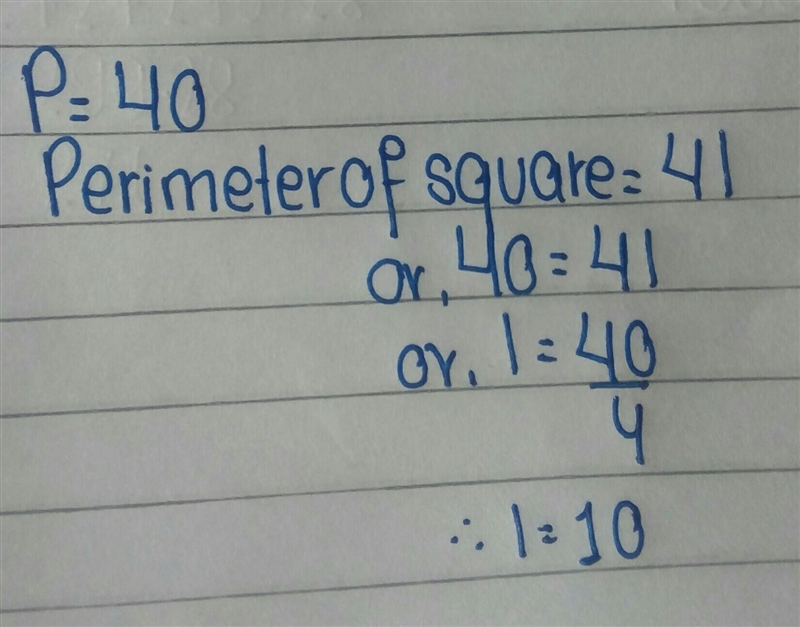 P = 40
Perimeter of square = 4l
or, 40 = 4l
or, l = 40
4
∴ l = 10